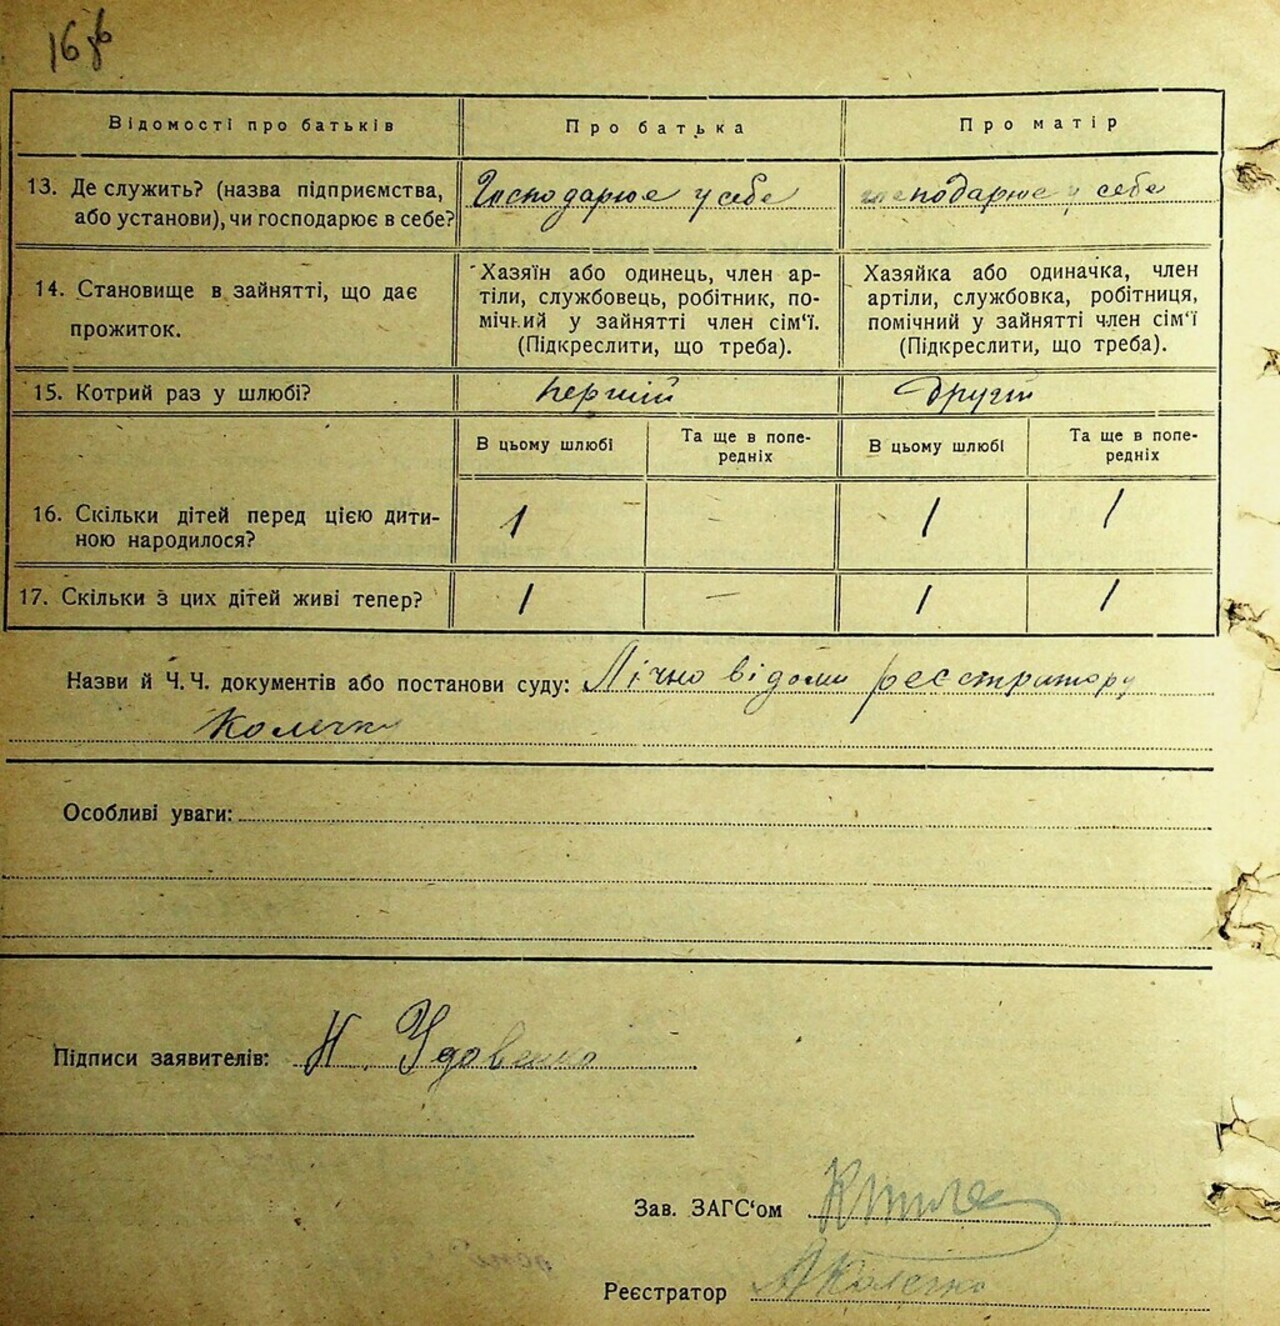 16
Відомості про батьків
Про батька
Про матір
13. Де служить? (назва підприємства,
або установи), чи господарює в себе?
Господарює у себе
господарює у себе
14. Становище в зайнятті, що дає
прожиток.
Хазяїн або одинець, член ар-
тіли, службовець, робітник, по-
мічний у зайнятті член сім'ї.
(Підкреслити, що треба).
Хазяйка або одиначка, член
артіли, службовка, робітниця,
помічний у зайнятті член сім'ї
(Підкреслити, що треба).
15. Котрий раз у шлюбі?
перший
другий
В цьому шлюбі
Та ще в попе-
редніх
В цьому шлюбі
Та ще в попе-
редніх
16. Скільки дітей перед цією дити-
ною народилося?
1
–
1
1
17. Скільки з цих дітей живі тепер?
1
–
1
1
Назви й Ч.Ч. документів або постанови суду: Лічно відомий реєстратору
Особливі уваги:
Підписи заявителів: Н. Удовенко
Зав. ЗАГС'ом
Реєстратор